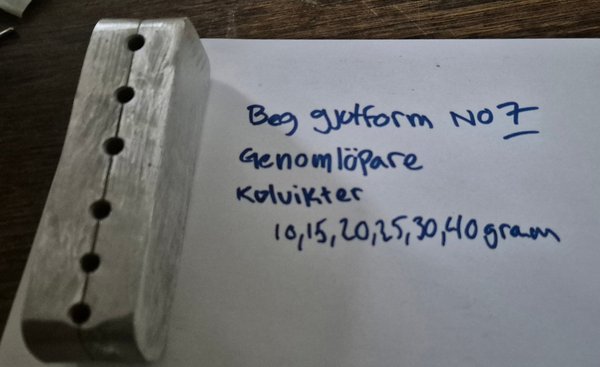 Beg gjutform NO7
Genomlöpare
Kulvikter
10,15,20,25,30,40 gram